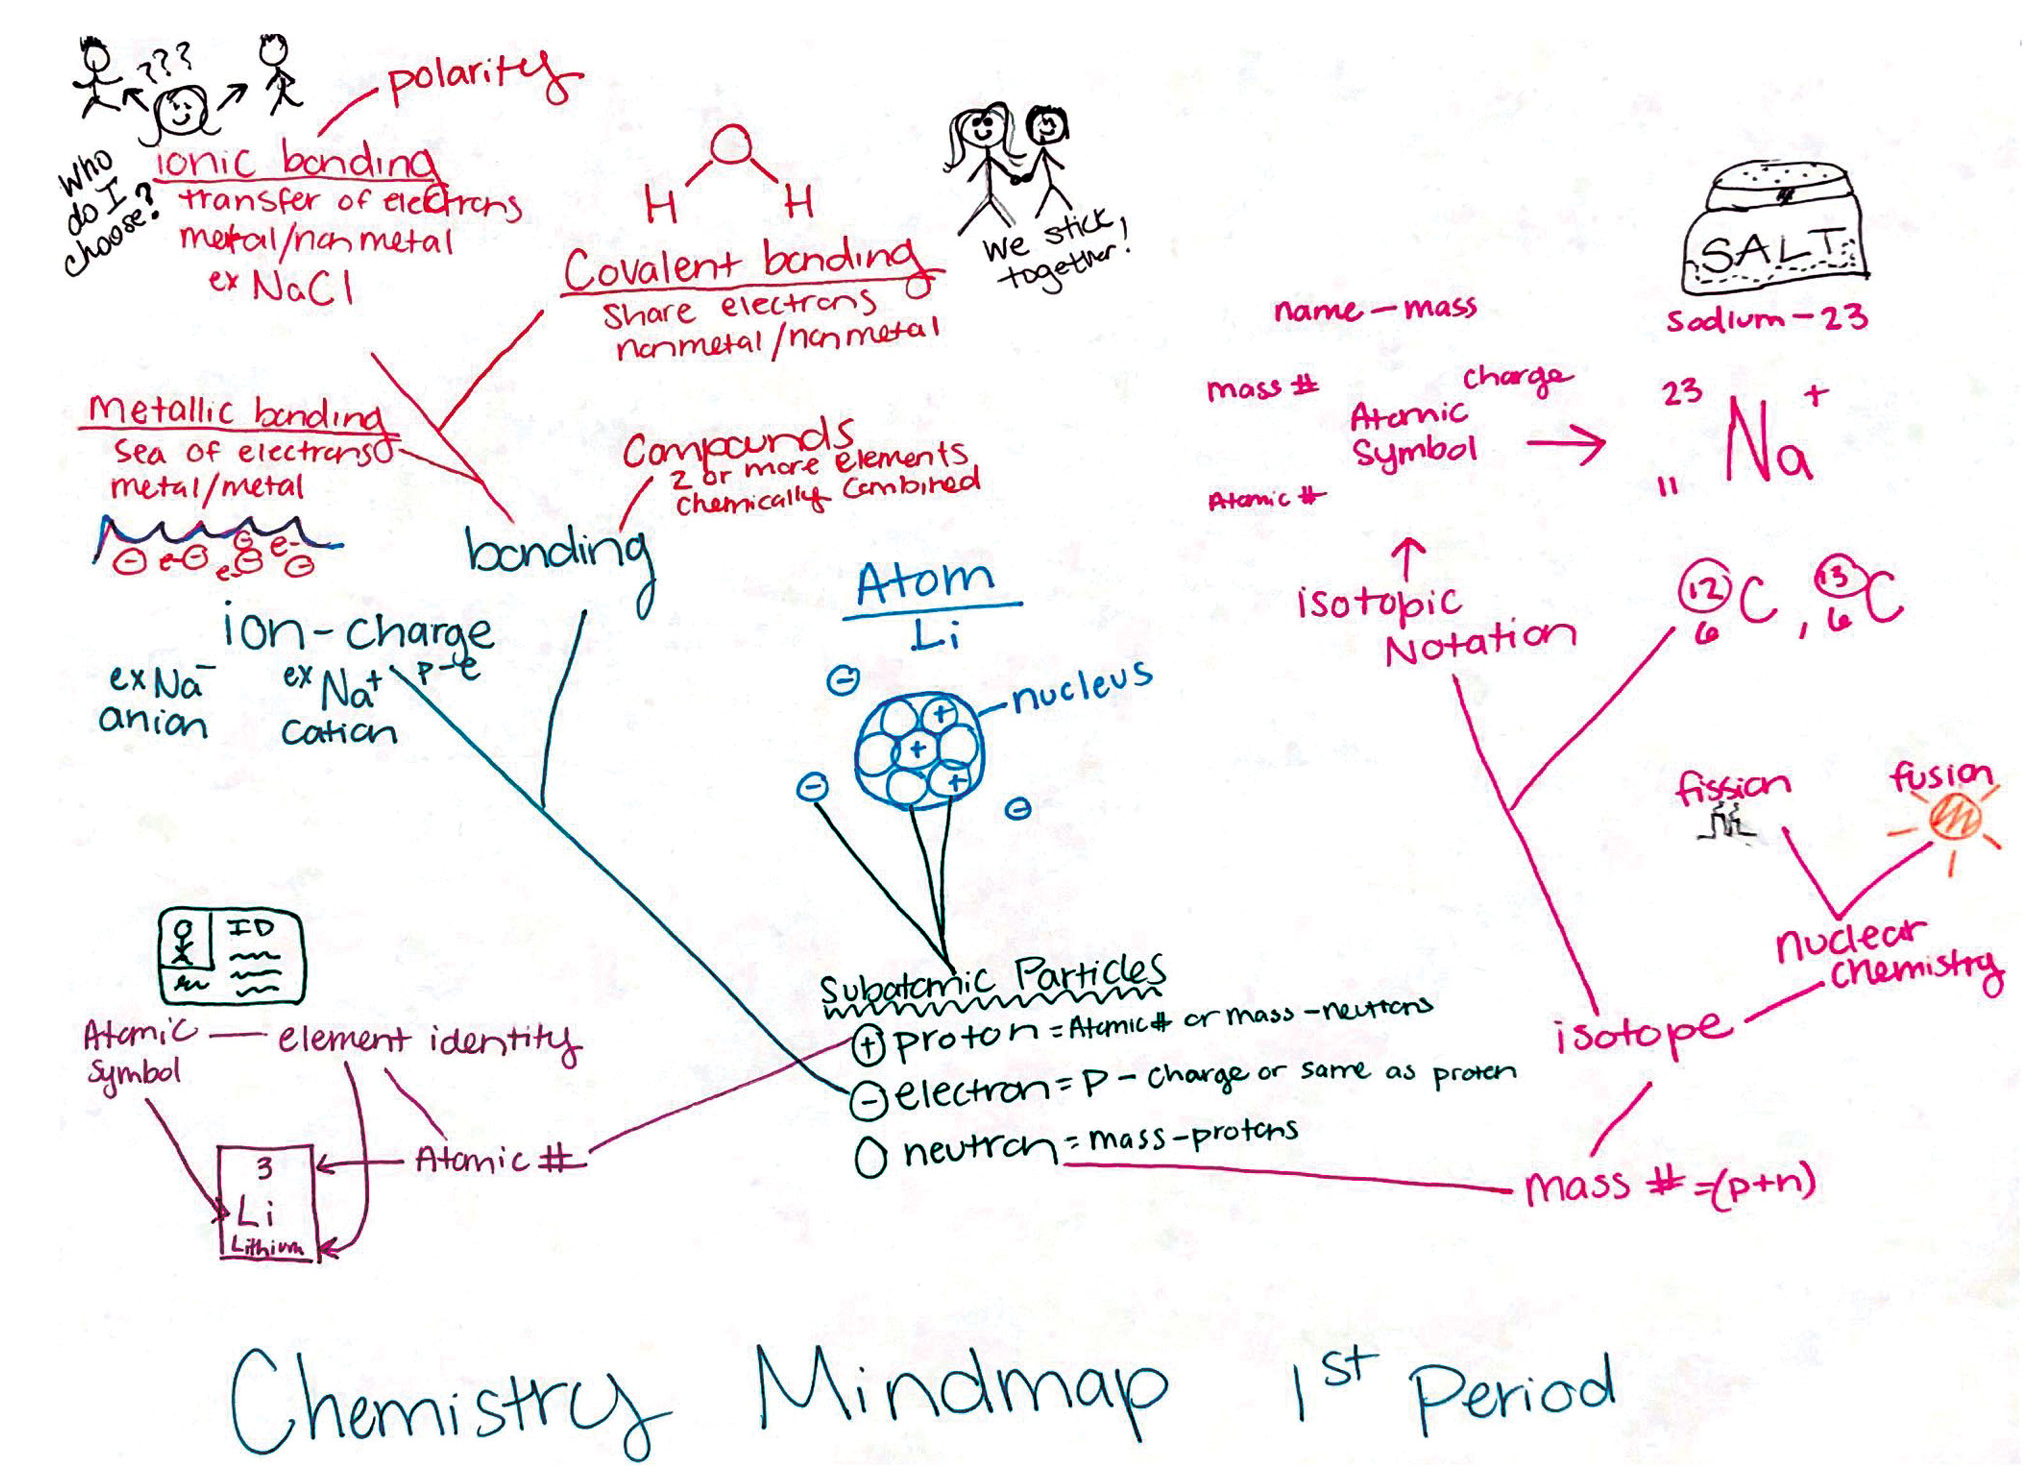 ???
polarity
Who
do I
choose?
ionic bonding
transfer of electrons
metal/nonmetal
ex NaCl
O
H H
Covalent bonding
Share electrons
nonmetal/nonmetal
We stick
together!
SALT
Sodium-23
name-mass
mass # charge
Atomic
Symbol
Atomic #
23 Na +
11
Metallic bonding
Sea of electrons
metal/metal
e-
e-
e-
Compounds
2 or more elements
chemically combined
bonding
ion-charge
p-e
ex Na-
anion
ex Na+
Cation
Atom
Li
nucleus
+
+
+
isotopic
Notation
12 C, 13 C
6 6
fission
fusion
nuclear
chemistry
isotope
ID
Atomic
Symbol
element identity
Atomic #
3
Li
Lithium
Subatomic Particles
+ proton = Atomic # or mass-neutrons
- electron = P - charge or same as proton
O neutron = mass-protons
mass # =(p+n)
Chemistry Mindmap 1st Period